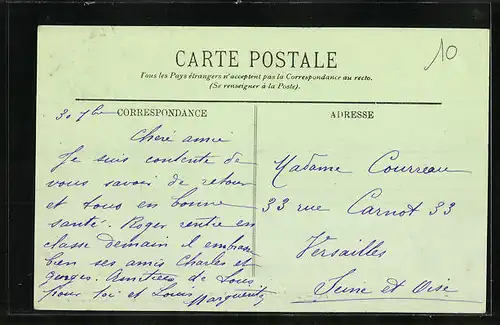 10
CARTE POSTALE
Tous les Pays étrangers n'acceptent pas la Correspondance au recto.
(Se renseigner à la Poste).
30 7bre CORRESPONDANCE
Chère amie
Je suis contente de
vous savoir de retour
et tous en bonne
santé. Roger rentre en
classe demain il embrasse
bien ses amis Charles et
georges. Amitiées de tous
pour toi et Louis Marguerite
ADRESSE
Madame Courreau
33 rue Carnot 33
Versailles
Seine et Oise